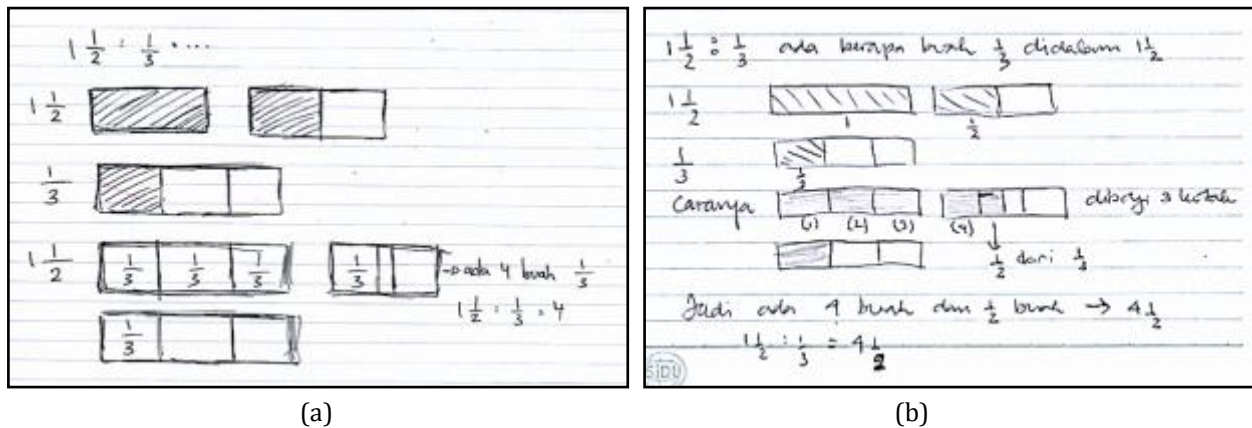 1 1/2 : 1/3 = ...
1 1/2
1/3
1 1/2
1/3 1/3 1/3 1/3 → ada 4 buah 1/3
1 1/2 : 1/3 = 4
1/3
(a)
1 1/2 : 1/3 ada berapa buah 1/3 didalam 1 1/2
1 1/2
1 1/2
1/3
1/3
Caranya dibagi 3 kotak
(1) (2) (3) (4)
↓
1/2 dari 1/3
Jadi ada 4 buah dan 1/2 buah → 4 1/2
1 1/2 : 1/3 = 4 1/2
SIDU
(b)